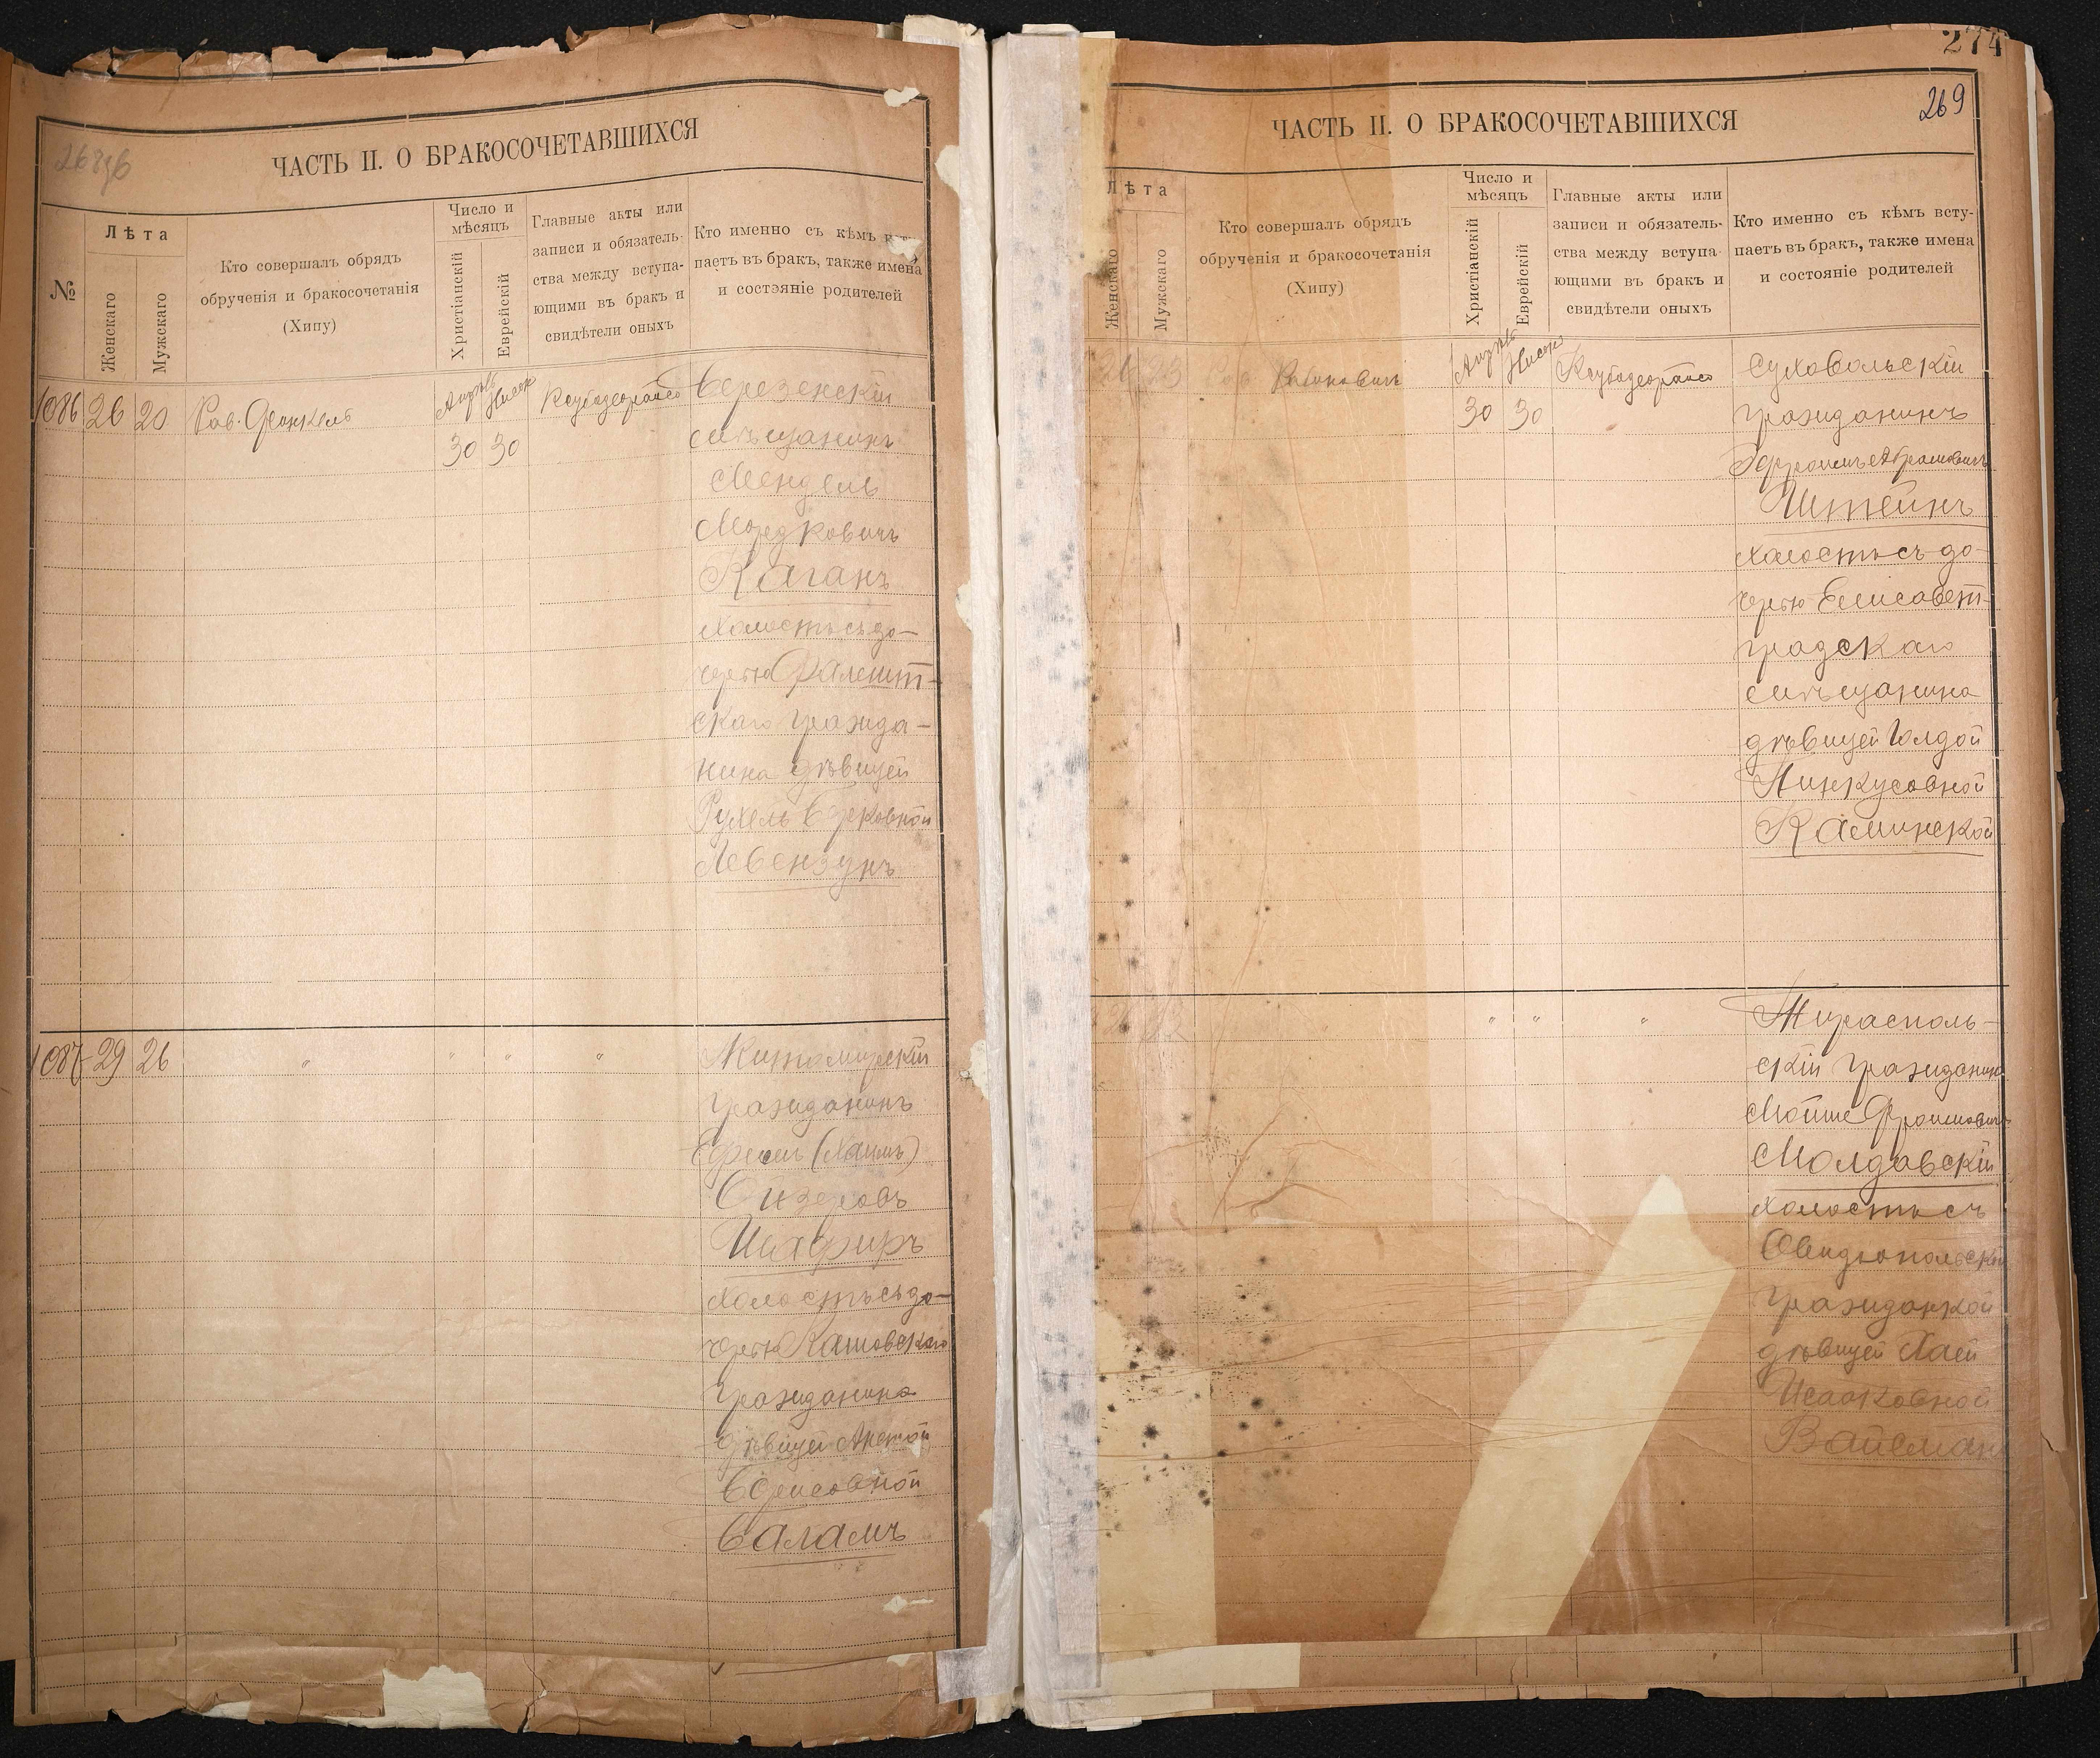 268 об
ЧАСТЬ II. О БРАКОСОЧЕТАВШИХСЯ
№
Лѣта
Женскаго
Мужскаго
Кто совершалъ обрядъ
обрученія и бракосочетанія
(Хипу)
Число и
мѣсяцъ
Христіанскій
Еврейскій
Главные акты или
записи и обязатель-
ства между вступа-
ющими въ бракъ и
свидѣтели оныхъ
Кто именно съ кѣмъ всту-
паетъ въ бракъ, также имена
и состояніе родителей
1086 26 20 Рав. Френкель
30 30
мѣщанинъ
Мендель
Мордковичъ
Каганъ
холостъ съ до-
черью Фалешт-
скаго гражда-
нина дѣвицей
Рухель Берковной
Левензунъ
1087 29 26 " " " " Житомирскій
гражданинъ
Сизеровъ
Шафиръ
холостъ съ до-
черью
гражданина
дѣвицей
Борисовной
Баламъ
274
269
ЧАСТЬ II. О БРАКОСОЧЕТАВШИХСЯ
Лѣта
Женскаго
Мужскаго
Кто совершалъ обрядъ
обрученія и бракосочетанія
(Хипу)
Число и
мѣсяцъ
Христіанскій
Еврейскій
Главные акты или
записи и обязатель-
ства между вступа-
ющими въ бракъ и
свидѣтели оныхъ
Кто именно съ кѣмъ всту-
паетъ въ бракъ, также имена
и состояніе родителей
23 Рав Рабиновичъ Суховольскій
30 30 гражданинъ
Эфроимъ Абрамовичъ
Штейнъ
холостъ съ до-
черью Елисавет-
градскаго
мѣщанина
дѣвицей Голдой
Пинкусовной
Каминской
" " " Тирасполь-
скій гражданин
Мойше Фроимовичъ
Молдавскій
холостъ съ
Овидіопольской
гражданкой
дѣвицей Хаей
Исааковной
Вайсман